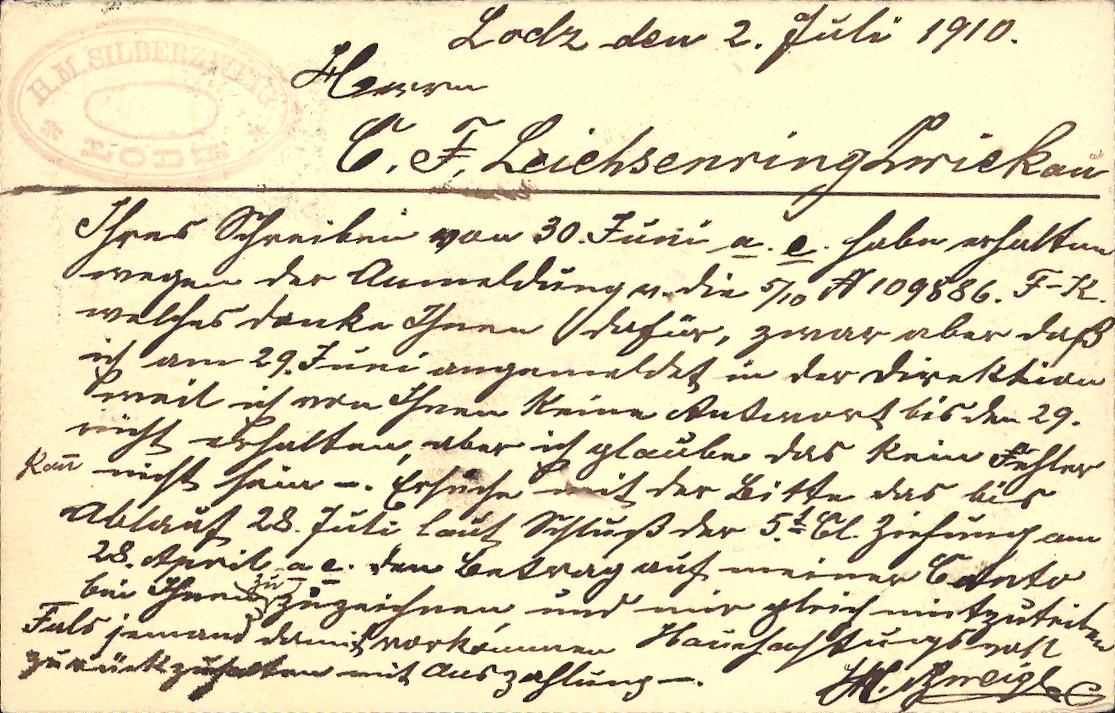 H.M. SILBERZWEIG
* LODZ *
Lodz den 2. Juli 1910.
Herrn
C. F. Leichsenring Zwickau
Ihres Schreiben von 30. Juni a. c. habe erhalten
wegen der Anmeldung v. die 5/10 N 109886. F-K.
welches danke Ihnen dafür, zwar aber daß
ich am 29. Juni angemeldet in der Direktion
weil ich von Ihnen keine Antwort bis den 29.
nicht erhalten, aber ich glaube das kein Fehler
kan nicht sein –. Ersuche mit der Bitte das bis
Ablauf 28. Juli laut Schluß der 5.t Cl. Ziehung am
28. April a c. den Betrag auf meiner Conto
bei Ihnen zu zuzeichnen und mir gleich mitzuteilen
Fals jemand damit vorkommen Hauchachtungsvoll
zurückzuhalten mit Auszahlung –.
HM. Zweig